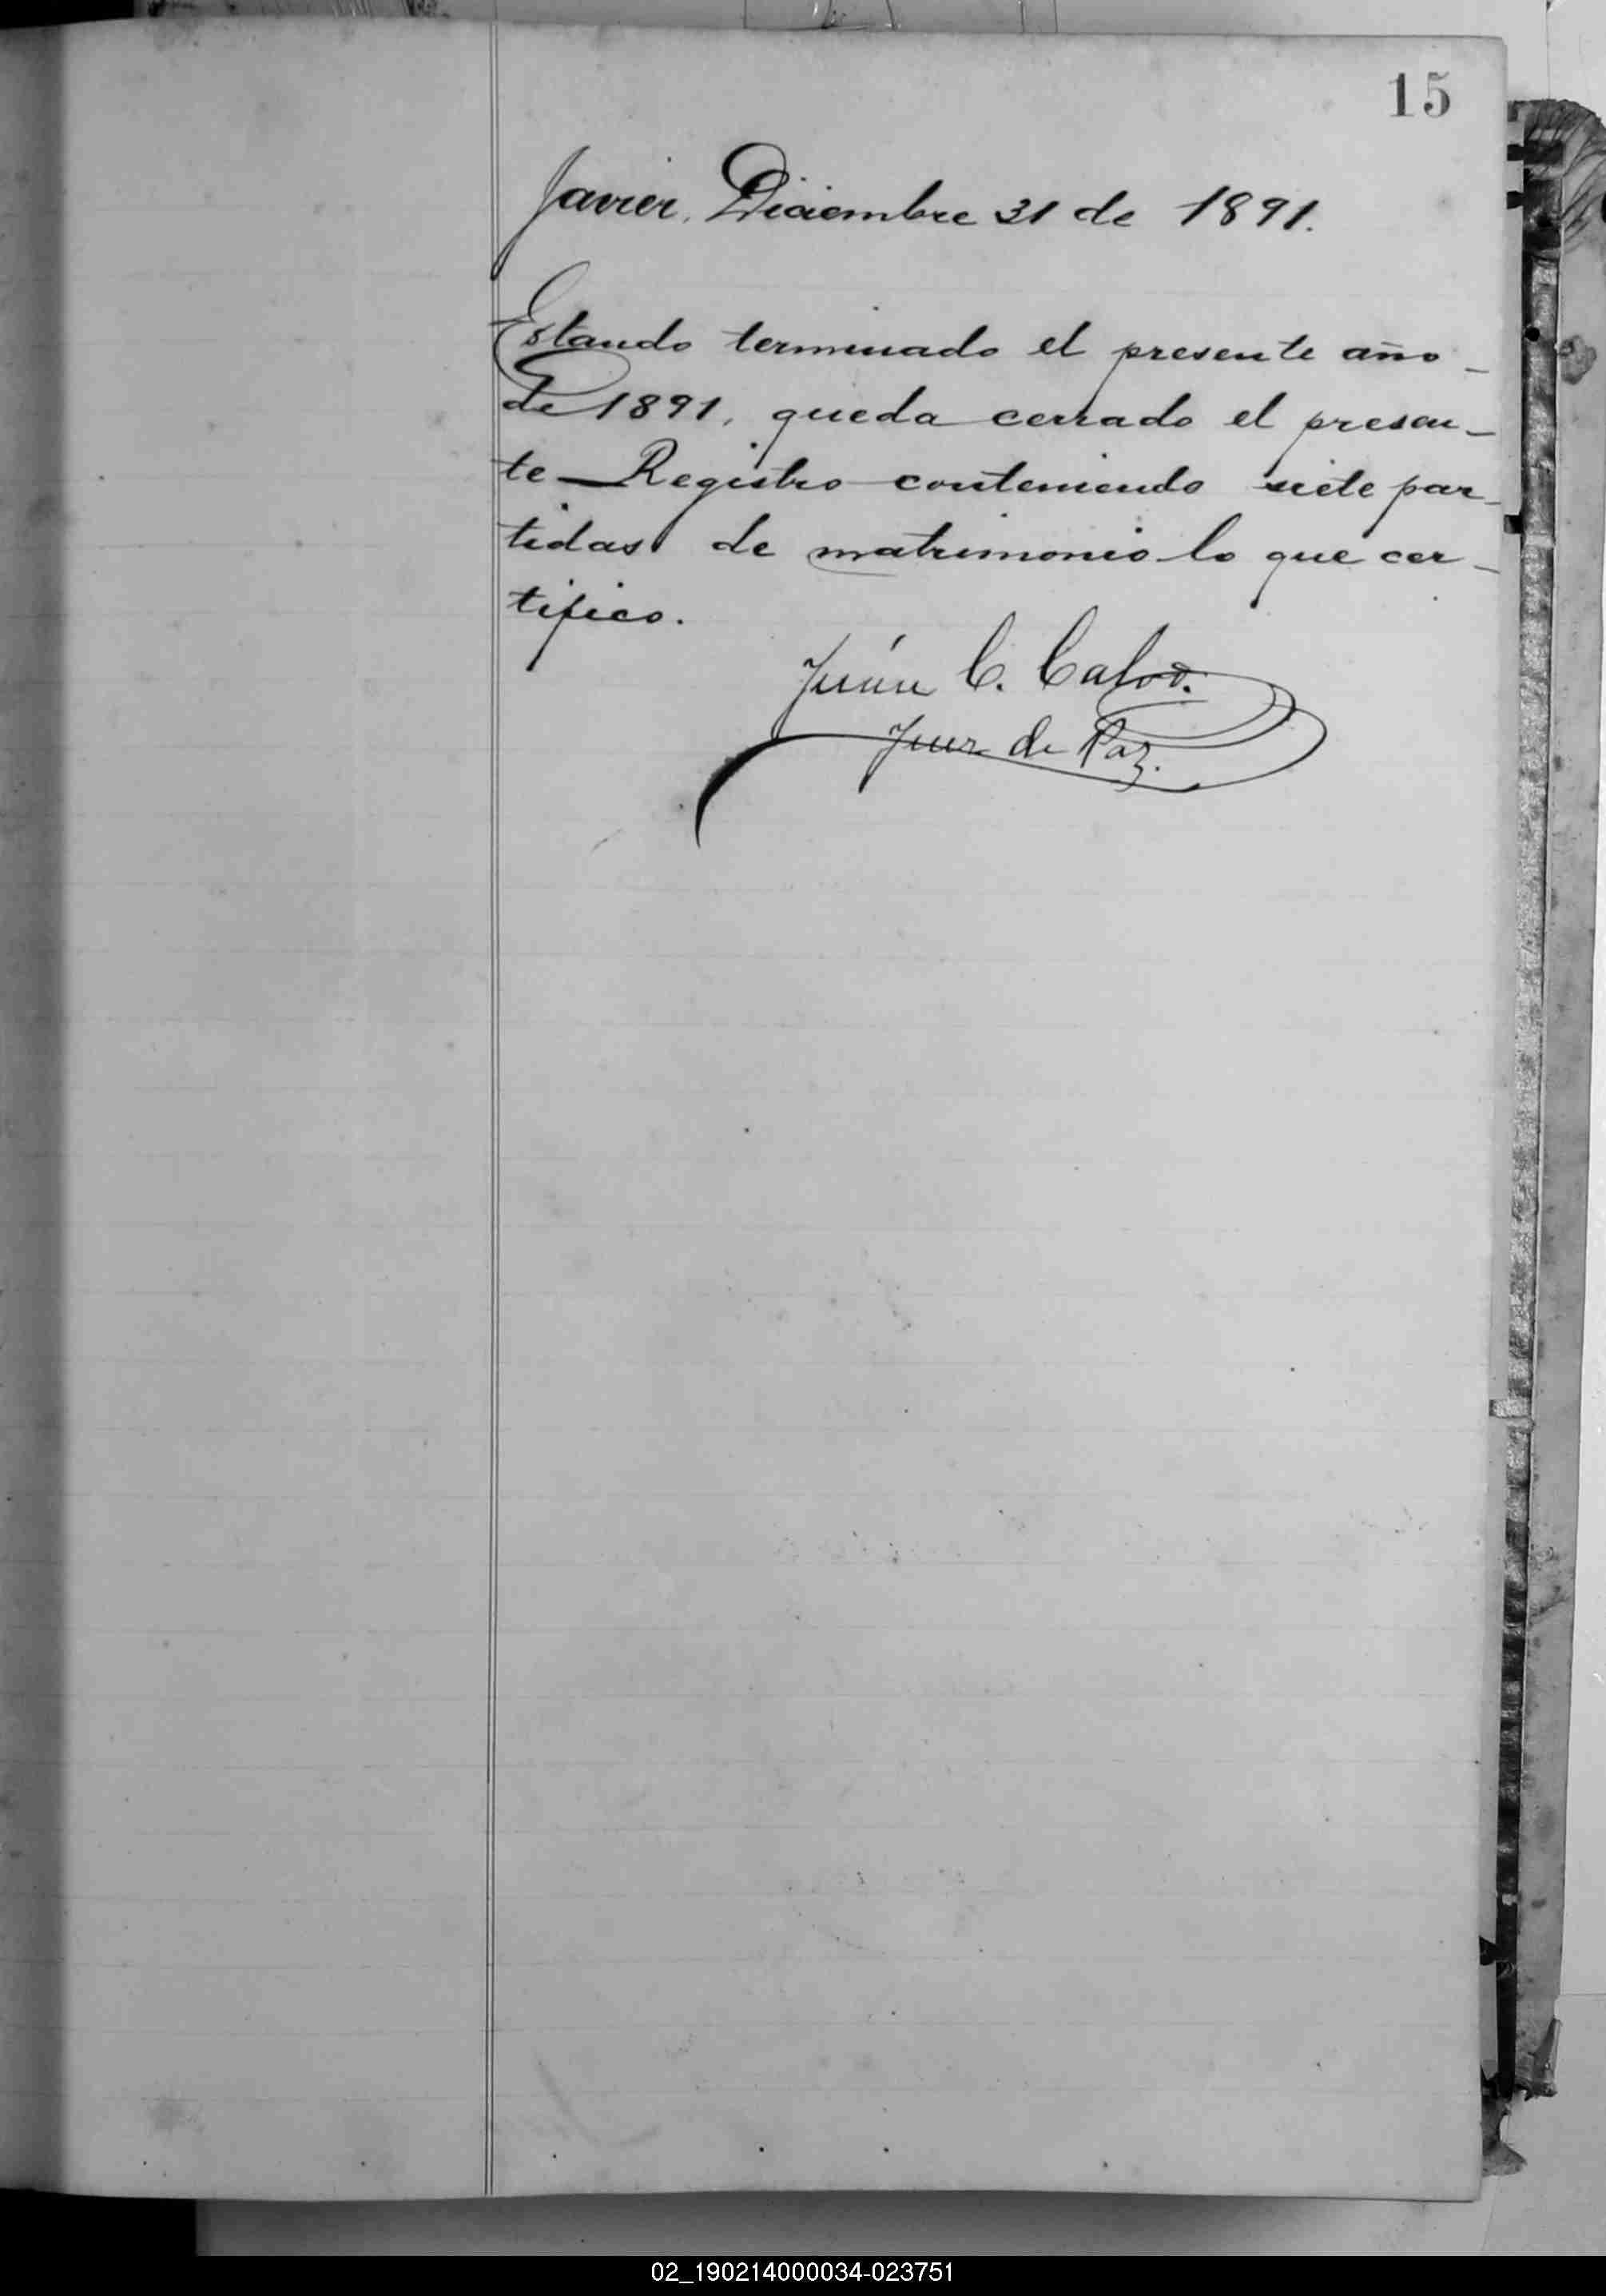 15
Javier, Diciembre 31 de 1891.
Estando terminado el presente año_
de 1891, queda cerrado el presen_
te_Registro conteniendo siete par_
tidas de matrimonio lo que cer_
tifico.
Juán C. Calvo.
Juez de Paz.
02_190214000034-023751